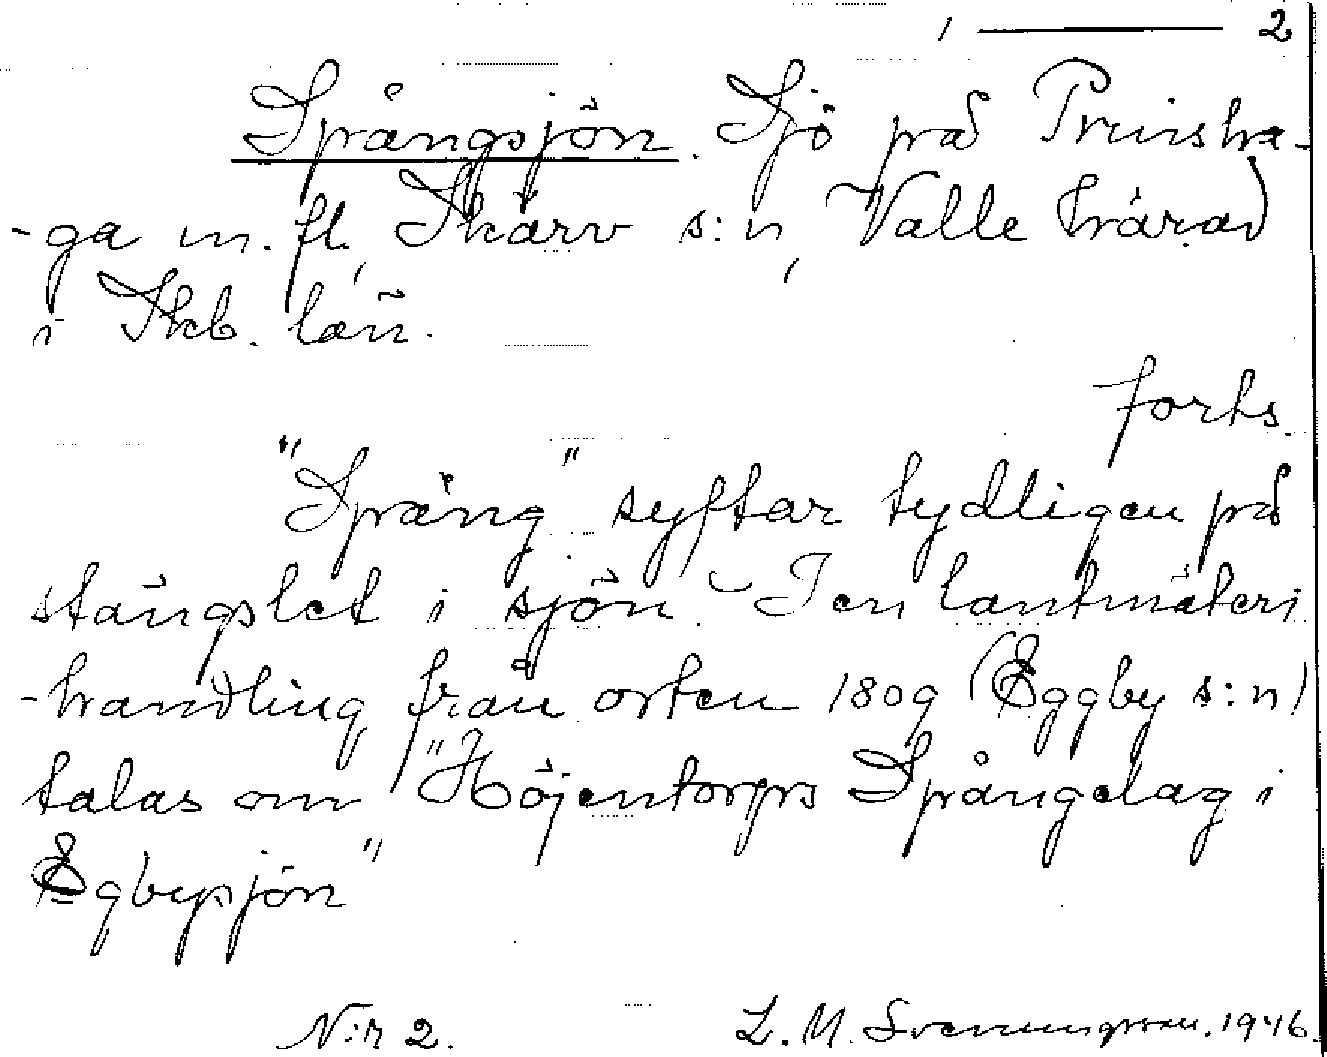 1 — 2
Spångsjön. Sjö på Prinsha-
-ga m. fl., Skärv s:n, Valle härad
i Skb. län.
forts.
"Spång" syftar tydligen på
stängslet i sjön – I en lantmäteri
-handling från orten 1809 (Eggby s:n)
talas om "Höjentorps Spångelag i
Egbysjön"
N:r 2.
L. M. Svenungsson. 1946.